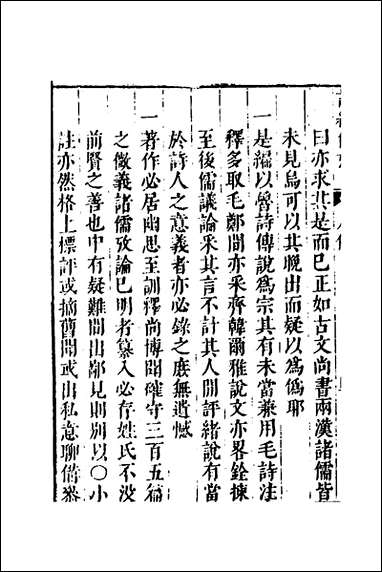 曰亦求其是而已正如古文尚書兩漢諸儒皆
未見烏可以其晚出而疑以爲僞耶
一是編以魯詩傳說爲宗其有未當兼用毛詩注
釋多取毛鄭間亦采齊韓爾雅說文亦畧銓揀
至後儒議論采其言不計其人閒評緒說有當
於詩人之意義者亦必錄之庶無遺憾
一著作必居幽思至訓釋尚博聞確守三百五篇
之微義諸儒攷論已明者纂入必存姓氏不没
前賢之善也中有疑難間出鄙見則別以〇小
註亦然格上標評或摘舊聞或出私意聊偕叅